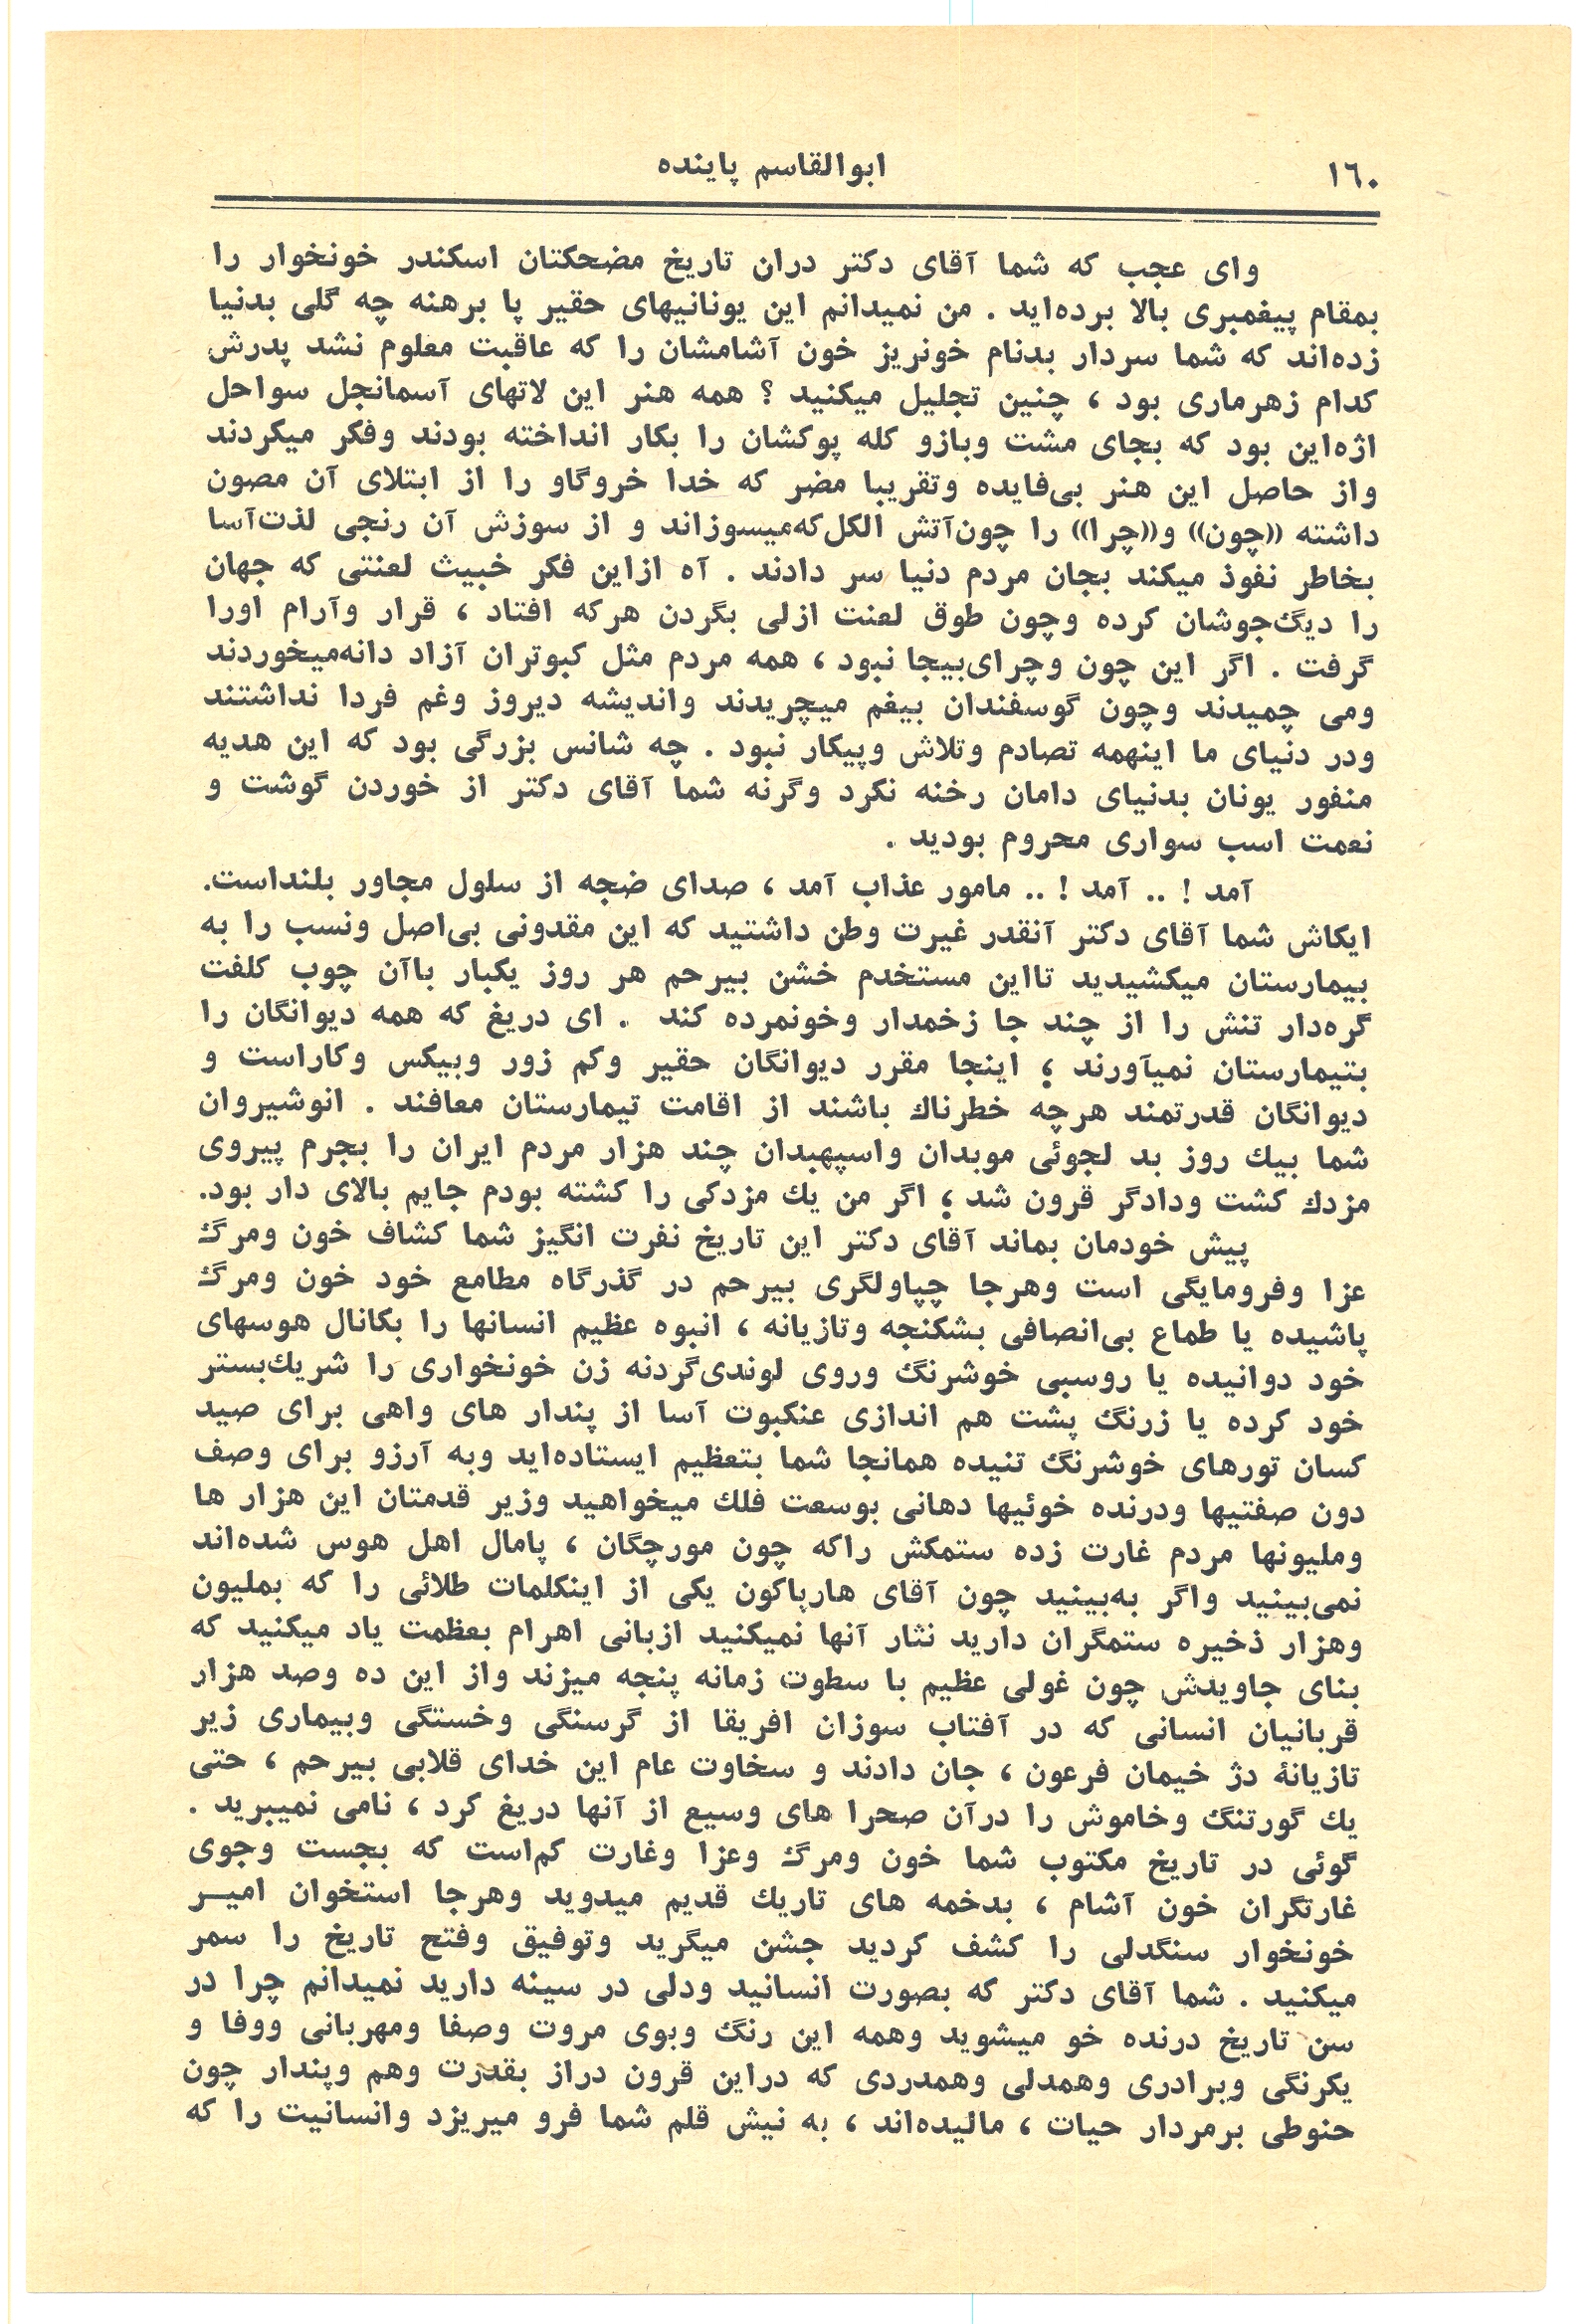 ۱٦۰ ابوالقاسم پاینده
وای عجب که شما آقای دکتر دران تاریخ مضحکتان اسکندر خونخوار را
بمقام پیغمبری بالا برده‌اید . من نمیدانم این یونانیهای حقیر پا برهنه چه گلی بدنیا
زده‌اند که شما سردار بدنام خونریز خون آشامشان را که عاقبت معلوم نشد پدرش
کدام زهرماری بود ، چنین تجلیل میکنید ؟ همه هنر این لاتهای آسمانجل سواحل
اژه‌این بود که بجای مشت وبازو کله پوکشان را بکار انداخته بودند وفکر میکردند
واز حاصل این هنر بی‌فایده وتقریبا مضر که خدا خروگاو را از ابتلای آن مصون
داشته «چون» و«چرا» را چون‌آتش الکل‌که‌میسوزاند و از سوزش آن رنجی لذت‌آسا
بخاطر نفوذ میکند بجان مردم دنیا سر دادند . آه ازاین فکر خبیث لعنتی که جهان
را دیگ‌جوشان کرده وچون طوق لعنت ازلی بگردن هرکه افتاد ، قرار وآرام اورا
گرفت . اگر این چون وچرای‌بیجا نبود ، همه مردم مثل کبوتران آزاد دانه‌میخوردند
ومی چمیدند وچون گوسفندان بیغم میچریدند واندیشه دیروز وغم فردا نداشتند
ودر دنیای ما اینهمه تصادم وتلاش وپیکار نبود . چه شانس بزرگی بود که این هدیه
منفور یونان بدنیای دامان رخنه نکرد وگرنه شما آقای دکتر از خوردن گوشت و
نعمت اسب سواری محروم بودید .
آمد ! .. آمد ! .. مامور عذاب آمد ، صدای ضجه از سلول مجاور بلنداست.
ایکاش شما آقای دکتر آنقدر غیرت وطن داشتید که این مقدونی بی‌اصل ونسب را به
بیمارستان میکشیدید تااین مستخدم خشن بیرحم هر روز یکبار باآن چوب کلفت
گره‌دار تنش را از چند جا زخمدار وخونمرده کند . ای دریغ که همه دیوانگان را
بتیمارستان نمیآورند ؛ اینجا مقرر دیوانگان حقیر وکم زور وبیکس وکاراست و
دیوانگان قدرتمند هرچه خطرناك باشند از اقامت تیمارستان معافند . انوشیروان
شما بیك روز بد لجوئی موبدان واسپهبدان چند هزار مردم ایران را بجرم پیروی
مزدك کشت ودادگر قرون شد ؛ اگر من یك مزدکی را کشته بودم جایم بالای دار بود.
پیش خودمان بماند آقای دکتر این تاریخ نفرت انگیز شما کشاف خون ومرگ
عزا وفرومایگی است وهرجا چپاولگری بیرحم در گذرگاه مطامع خود خون ومرگ
پاشیده یا طماع بی‌انصافی بشکنجه وتازیانه ، انبوه عظیم انسانها را بکانال هوسهای
خود دوانیده یا روسبی خوشرنگ وروی لوندی‌گردنه زن خونخواری را شریك‌بستر
خود کرده یا زرنگ پشت هم اندازی عنکبوت آسا از پندار های واهی برای صید
کسان تورهای خوشرنگ تنیده همانجا شما بتعظیم ایستاده‌اید وبه آرزو برای وصف
دون صفتیها ودرنده خوئیها دهانی بوسعت فلك میخواهید وزیر قدمتان این هزار ها
وملیونها مردم غارت زده ستمکش راکه چون مورچگان ، پامال اهل هوس شده‌اند
نمی‌بینید واگر به‌بینید چون آقای هارپاکون یکی از اینکلمات طلائی را که بملیون
وهزار ذخیره ستمگران دارید نثار آنها نمیکنید ازبانی اهرام بعظمت یاد میکنید که
بنای جاویدش چون غولی عظیم با سطوت زمانه پنجه میزند واز این ده وصد هزار
قربانیان انسانی که در آفتاب سوزان افریقا از گرسنگی وخستگی وبیماری زیر
تازیانهٔ دژ خیمان فرعون ، جان دادند و سخاوت عام این خدای قلابی بیرحم ، حتی
یك گورتنگ وخاموش را درآن صحرا های وسیع از آنها دریغ کرد ، نامی نمیبرید .
گوئی در تاریخ مکتوب شما خون ومرگ وعزا وغارت کم‌است که بجست وجوی
غارتگران خون آشام ، بدخمه های تاریك قدیم میدوید وهرجا استخوان امیـر
خونخوار سنگدلی را کشف کردید جشن میگرید وتوفیق وفتح تاریخ را سمر
میکنید . شما آقای دکتر که بصورت انسانید ودلی در سینه دارید نمیدانم چرا در
سن تاریخ درنده خو میشوید وهمه این رنگ وبوی مروت وصفا ومهربانی ووفا و
یکرنگی وبرادری وهمدلی وهمدردی که دراین قرون دراز بقدرت وهم وپندار چون
حنوطی برمردار حیات ، مالیده‌اند ، به نیش قلم شما فرو میریزد وانسانیت را که